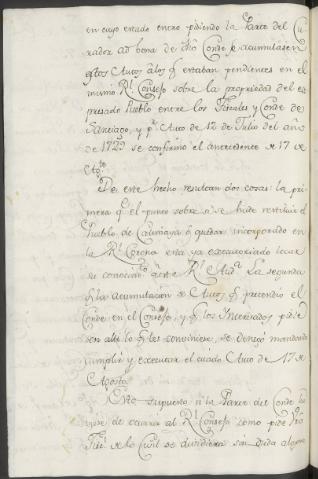 en cuyo estado entro pidiendo la Parte del Cu
rador ad bona de dho Conde se acumulasen
estos Autos a los q̃ estaban pendientes en el
mismo Rl. Consejo sobre la propriedad del ex
presado Pueblo entre los Fiscales y Conde de
Santiago, y pr. Auto de 12 de Julio del año
de 1729 se confirmó el antecedente de 17 de
Agto.
De este hecho resultan dos cosas: la pri
mera q̃ el punto sobre q̃ se hade restituir el
Pueblo de Calimaya, o quedar incorporado en
la Rl. Corona esta ya executoriado tocar
su conocimto. a este Rl. Auda. La segunda
q̃ la acumulacion de Autos q̃ pretendió el
Conde en el Consejo, y q̃ los Interesados pidie
sen alli lo q̃ les conviniera, se denegó mandando
cumplir y executar el citado Auto de 17 de
Agosto.
Esto supuesto si la Parte del Conde hu
viere de ocurrir al Rl. Consejo como pide
de lo Civil se dividiera sin duda alguna